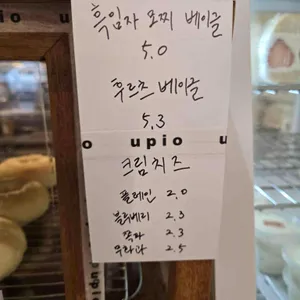 흑임자 모찌 베이글
5.0
후르츠 베이글
5.3
upio
크림치즈
플레인 2.0
블루베리 2.3
쪽파 2.3
무화과 2.5
upio